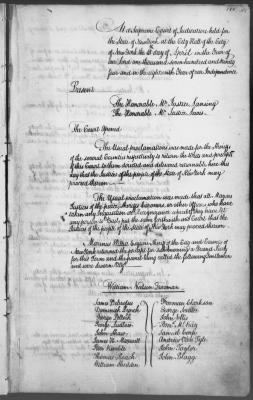 At a Supreme Court of Judicature held for
the State of New York at the City Hall of the City
of New York the day of April in the Year of
our Lord one thousand seven hundred and ninety
four and in the eighteenth Year of our Independence
Present
The Honorable Mr. Justice Lansing
The Honorable Mr. Justice
The Court Opened
The Usual proclamations were made for the Sheriffs
of the several Counties respectively to return the Writs and precepts
of this Court to them directed and delivered returnable here this
day that the Justices of the people of the State of New York may
proceed thereon
The Usual proclamation was made that all
Justices of the peace, Sheriffs Coroners and other Officers who have
taken any Inquisition or Recognizance whereof they
any person to Bail, put the same forthwith into Court that the
Justices of the people of the State of New York may proceed thereon
Marinus Willett Esquire Sheriff of the City and County of
New York returned the precept for Summoning a Grand Jury
for this Term and the panel being called the following Gentlemen
and were Sworn
William Neilson Foreman
James
Dominick Lynch
George Pollock
George
John Shaw
James H. Maxwell
Thomas Roach
William Sheddon
Freeman Clarkson
George
John
Samuel
Andrew
John Taylor
John Blagge